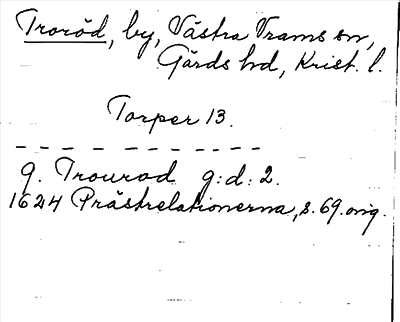 Troröd, by, Västra Vrams sn,
Gärds hd, Krist. l.
Torper 13.
9. Trourod g:d: 2.
1624 Prästrelationerna, s. 69. orig.